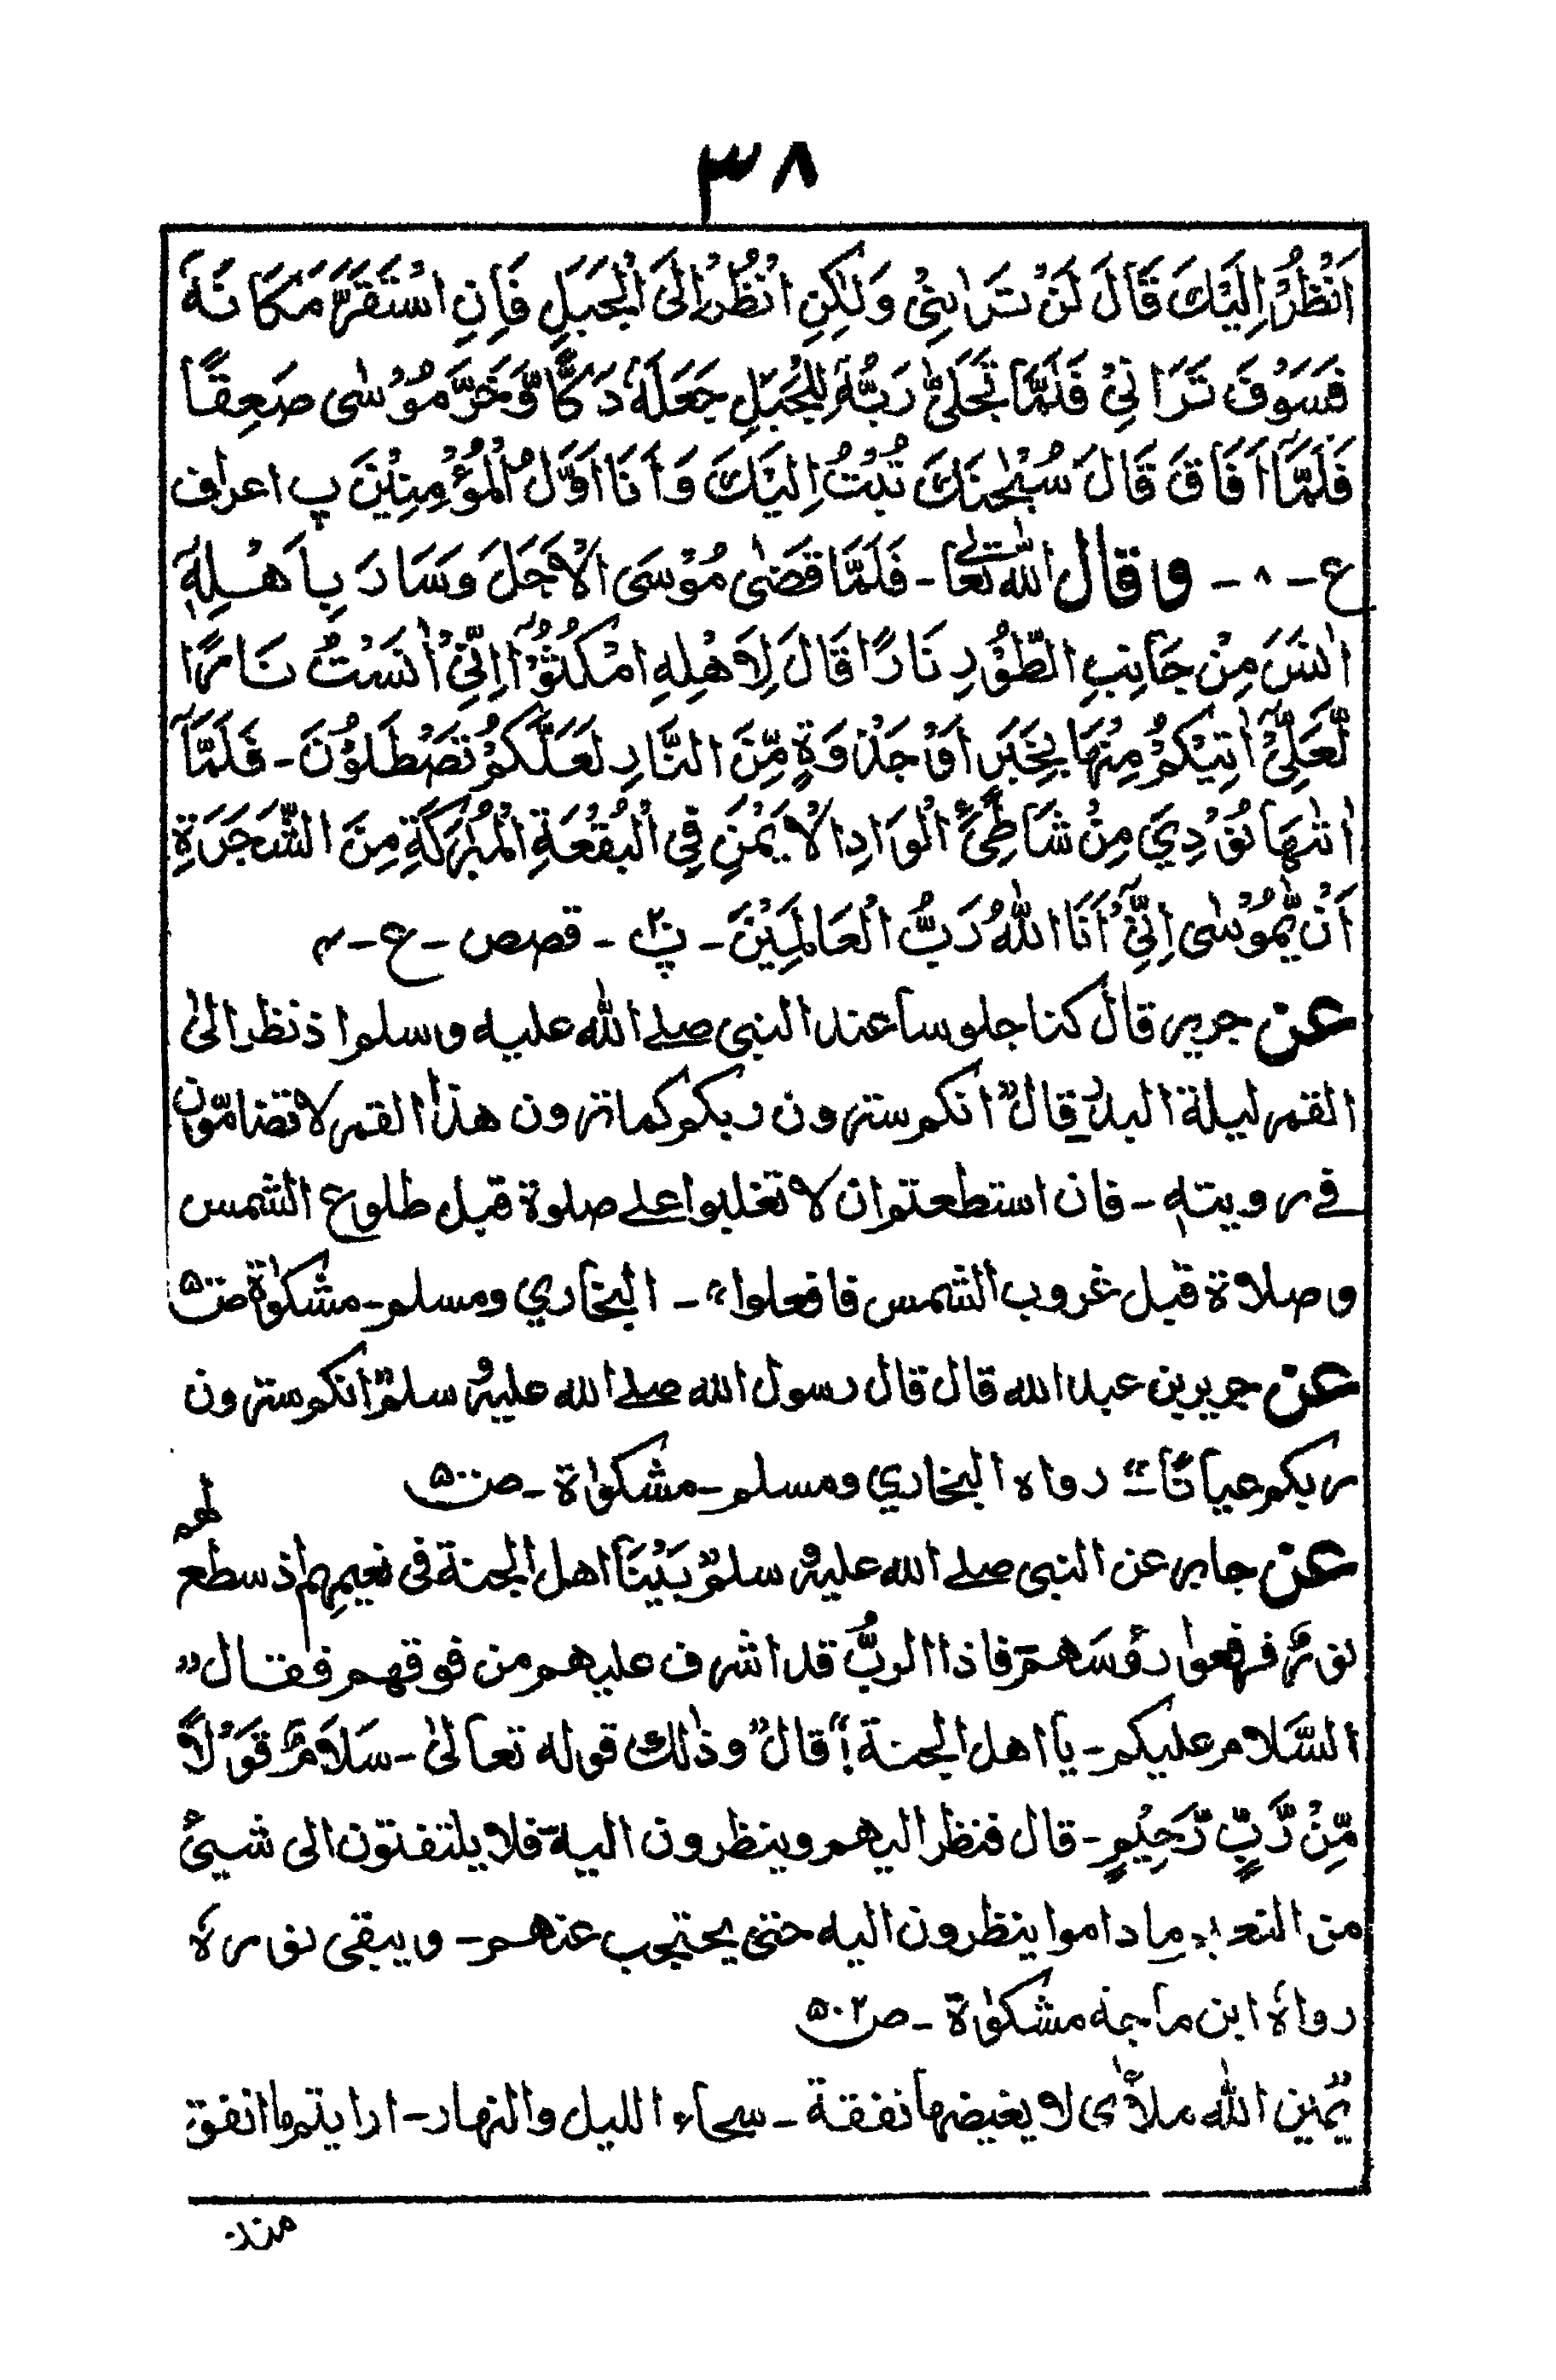 ٣٨
اَنْظُرْ اِلَيْكَ قَالَ لَنْ تَرَانِيْ وَلٰكِنِ انْظُرْ اِلَى الْجَبَلِ فَاِنِ اسْتَقَرَّ مَكَانَهٗ
فَسَوْفَ تَرَانِيْ فَلَمَّا تَجَلّٰى رَبُّهٗ لِلْجَبَلِ جَعَلَهٗ دَكًّا وَّخَرَّ مُوْسٰى صَعِقًا
فَلَمَّآ اَفَاقَ قَالَ سُبْحٰنَكَ تُبْتُ اِلَيْكَ وَاَنَا اَوَّلُ الْمُؤْمِنِيْنَ پ اعراف
ع - ٨ - وقال الله تعالى - فَلَمَّا قَضٰى مُوْسَى الْاَجَلَ وَسَارَ بِاَهْلِهٖٓ
اٰنَسَ مِنْ جَانِبِ الطُّوْرِ نَارًا قَالَ لِاَهْلِهِ امْكُثُوْٓا اِنِّيْٓ اٰنَسْتُ نَارًا
لَّعَلِّيْٓ اٰتِيْكُمْ مِنْهَا بِخَبَرٍ اَوْ جَذْوَةٍ مِّنَ النَّارِ لَعَلَّكُمْ تَصْطَلُوْنَ - فَلَمَّآ
اَتٰىهَا نُوْدِيَ مِنْ شَاطِئِ الْوَادِ الْاَيْمَنِ فِي الْبُقْعَةِ الْمُبٰرَكَةِ مِنَ الشَّجَرَةِ
اَنْ يّٰمُوْسٰى اِنِّيْٓ اَنَا اللّٰهُ رَبُّ الْعَالَمِيْنَ - پ٢٠ - قصص - ع - ٤
عن جرير قال كنا جلوسا عند النبي صلے الله عليه وسلم اذ نظر الىٰ
القمر ليلة البدر قال" انكم سترون ربكم كما ترون هذا القمر لا تضامّون
في رويته - فان استطعتم ان لا تغلبوا علے صلوة قبل طلوع الشمس
وصلاة قبل غروب الشمس فافعلوا" - البخاري ومسلم - مشكوٰة ص٥٠٠
عن جرير بن عبد الله قال قال رسول الله صلے الله عليه وسلم" انكم سترون
ربكم عيانًا" - رواه البخاري ومسلم - مشكوٰة - ص٥٠٠
عن جابر عن النبي صلے الله عليه وسلم" بَيْنَا اهل الجنة فى نعيمهم اذ سطع لهم
نورٌ فرفعوا رؤسَهم فاذا الربُّ قد اشرف عليهم من فوقهم فقال"
السَّلام عليكم - يا اهل الجنة !" قال" وذٰلك قوله تعالىٰ - سَلَامٌ قَوْلًا
مِّنْ رَّبٍّ رَّحِيْمٍ - قال فنظر اليهم وينظرون اليه فلا يلتفتون الى شيئ
من النعيم ما داموا ينظرون اليه حتى يحتجب عنهم - ويبقى نوره
رواه ابن ماجه مشكوٰة - ص٥٠٢
يمين الله ملأى لا يغيضها نفقة - سحاء الليل والنهار - ارايتم ما انفق
منذ